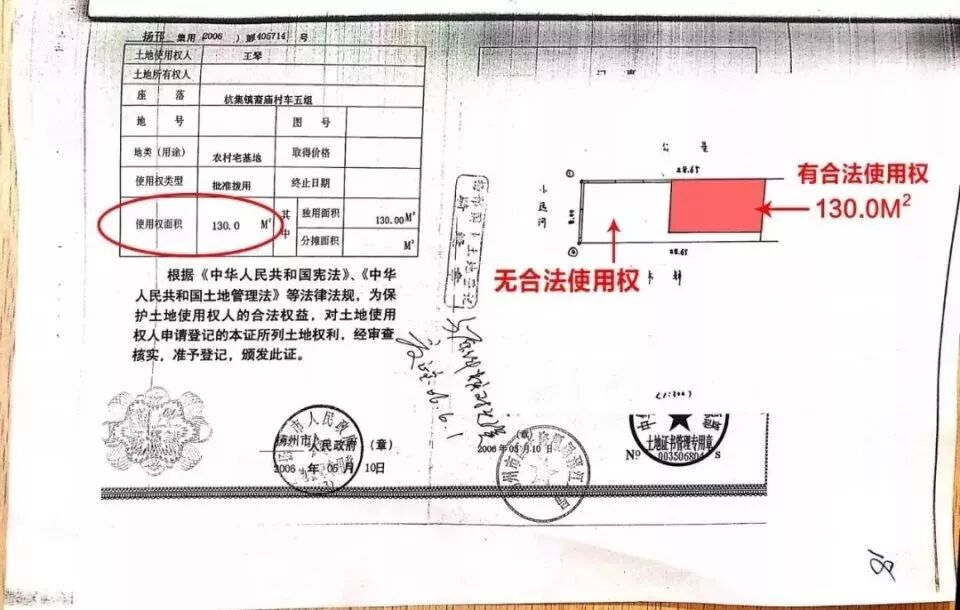 扬邗 集用(2006)第405714号
土地使用权人 王琴
土地所有权人
座落 杭集镇裔庙村车五组
地号 图号
地类(用途) 农村宅基地 取得价格
使用权类型 批准拨用 终止日期
使用权面积 130.0 M² 其中 独用面积 130.00M²
分摊面积 M²
根据《中华人民共和国宪法》、《中华
人民共和国土地管理法》等法律法规,为保
护土地使用权人的合法权益,对土地使用
权人申请登记的本证所列土地权利,经审查
核实,准予登记,颁发此证。
扬州市人民政府(章)
2006年05月10日
记事
28.65
小运河
8.00
28.65
有合法使用权
130.0M²
无合法使用权
(1:300)
(章)
2006年05月10日
土地证书管理专用章
Nº 003506804 s
06.6.1
18